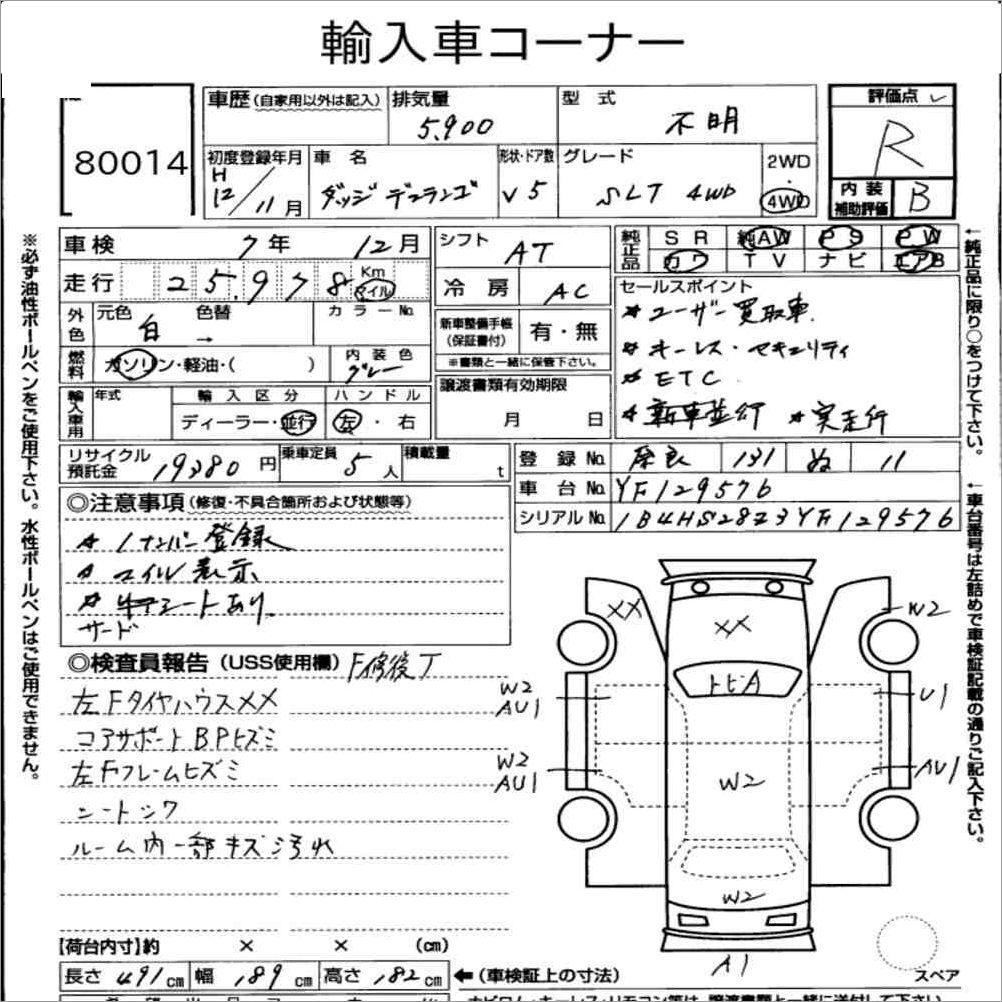 輸入車コーナー
80014
車歴 (自家用以外は記入) 排気量 5,900 型 式 不明
初度登録年月 H12/11月 車 名 ダッジ デュランゴ 形状・ドア数 V5 グレード SLT 4WD 2WD・4WD
評価点 R
内装補助評価 B
車検 7年 12月
走行 25,978 Km マイル
外色 元色 白 → 色替 カラーNo.
燃料 ガソリン・軽油・( ) 内装色 グレー
輸入車用 年式 輸入区分 ディーラー・並行 ハンドル 左・右
シフト AT
冷房 AC
新車整備手帳 (保証書付) 有・無
※書類と一緒に保管下さい。
譲渡書類有効期限 月 日
純正品 SR 純AW PS PW
カワ TV ナビ エアB
セールスポイント
* ユーザー買取車.
* キーレス・セキュリティ
* ETC
* 新車並行 * 実走行
リサイクル預託金 19380円 乗車定員 5人 積載量 t
登録No. 奈良 131 ぬ 11
車台No. YF129576
シリアルNo. 1B4HS28Z3YF129576
◎注意事項 (修復・不具合箇所および状態等)
* 1ナンバー登録
* マイル表示
サードシートあり
◎検査員報告 (USS使用欄) F修復ア
左FタイヤハウスXX
コアサポートBPヒズミ
左Fフレームヒズミ
シートシワ
ルーム内一部キズ汚れ
XX
XX
W2
トビA
W2
AU1
U1
W2
AU1
AU1
W2
W2
A1
スペア
【荷台内寸】約 × × (cm)
長さ 491cm 幅 189cm 高さ 182cm ←(車検証上の寸法)
※必ず油性ボールペンをご使用下さい。水性ボールペンはご使用できません。
←純正品に限り○をつけて下さい。
←車台番号は左詰めで車検証記載の通りご記入下さい。